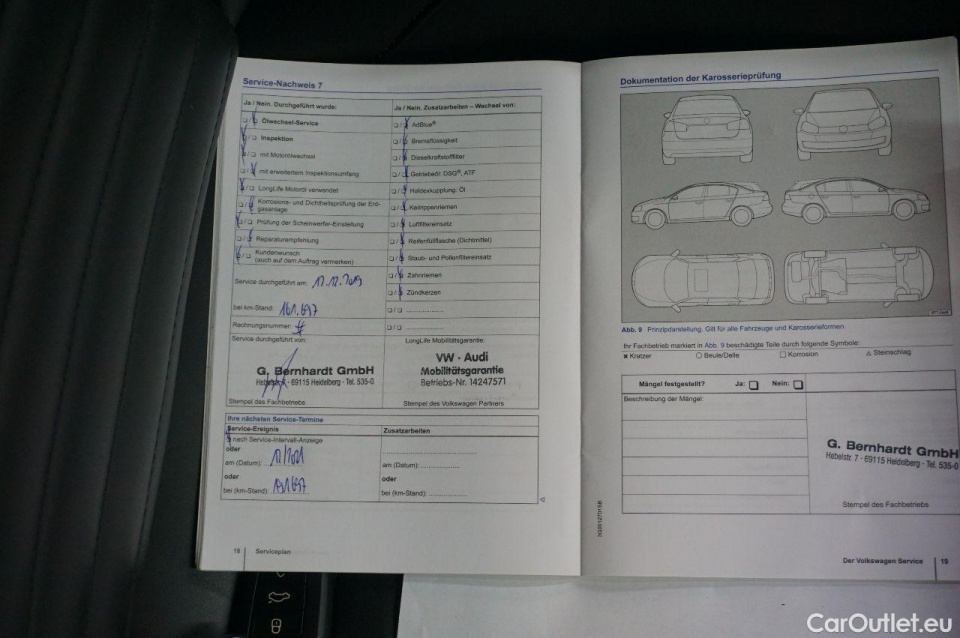 Service-Nachweis 7
Ja / Nein. Durchgeführt wurde:
Ölwechsel-Service
Inspektion
mit Motorölwechsel
mit erweitertem Inspektionsumfang
LongLife Motoröl verwendet
Korrosions- und Dichtheitsprüfung der Erd-
gasanlage
Prüfung der Scheinwerfer-Einstellung
Reparaturempfehlung
Kundenwunsch
(auch auf dem Auftrag vermerken)
Service durchgeführt am: 17.12.2019
bei km-Stand: 161.697
Rechnungsnummer:
Service durchgeführt von:
G. Bernhardt GmbH
Hebelstr. 7 · 69115 Heidelberg · Tel. 535-0
Stempel des Fachbetriebs
Ja / Nein. Zusatzarbeiten – Wechsel von:
AdBlue®
Bremsflüssigkeit
Dieselkraftstofffilter
Getriebeöl: DSG®, ATF
Haldexkupplung: Öl
Keilrippenriemen
Luftfiltereinsatz
Reifenfüllflasche (Dichtmittel)
Staub- und Pollenfiltereinsatz
Zahnriemen
Zündkerzen
LongLife Mobilitätsgarantie:
VW · Audi
Mobilitätsgarantie
Betriebs-Nr. 14247571
Stempel des Volkswagen Partners
Ihre nächsten Service-Termine
Service-Ereignis
nach Service-Intervall-Anzeige
oder
am (Datum): 12/2021
oder
bei (km-Stand): 191697
Zusatzarbeiten
am (Datum):
oder
bei (km-Stand):
18 Serviceplan
Dokumentation der Karosserieprüfung
Abb. 9 Prinzipdarstellung. Gilt für alle Fahrzeuge und Karosserieformen
Ihr Fachbetrieb markiert in Abb. 9 beschädigte Teile durch folgende Symbole:
× Kratzer ○ Beule/Delle □ Korrosion △ Steinschlag
Mängel festgestellt? Ja: □ Nein: □
Beschreibung der Mängel:
G. Bernhardt GmbH
Hebelstr. 7 · 69115 Heidelberg · Tel. 535-0
Stempel des Fachbetriebs
Der Volkswagen Service 19
CarOutlet.eu